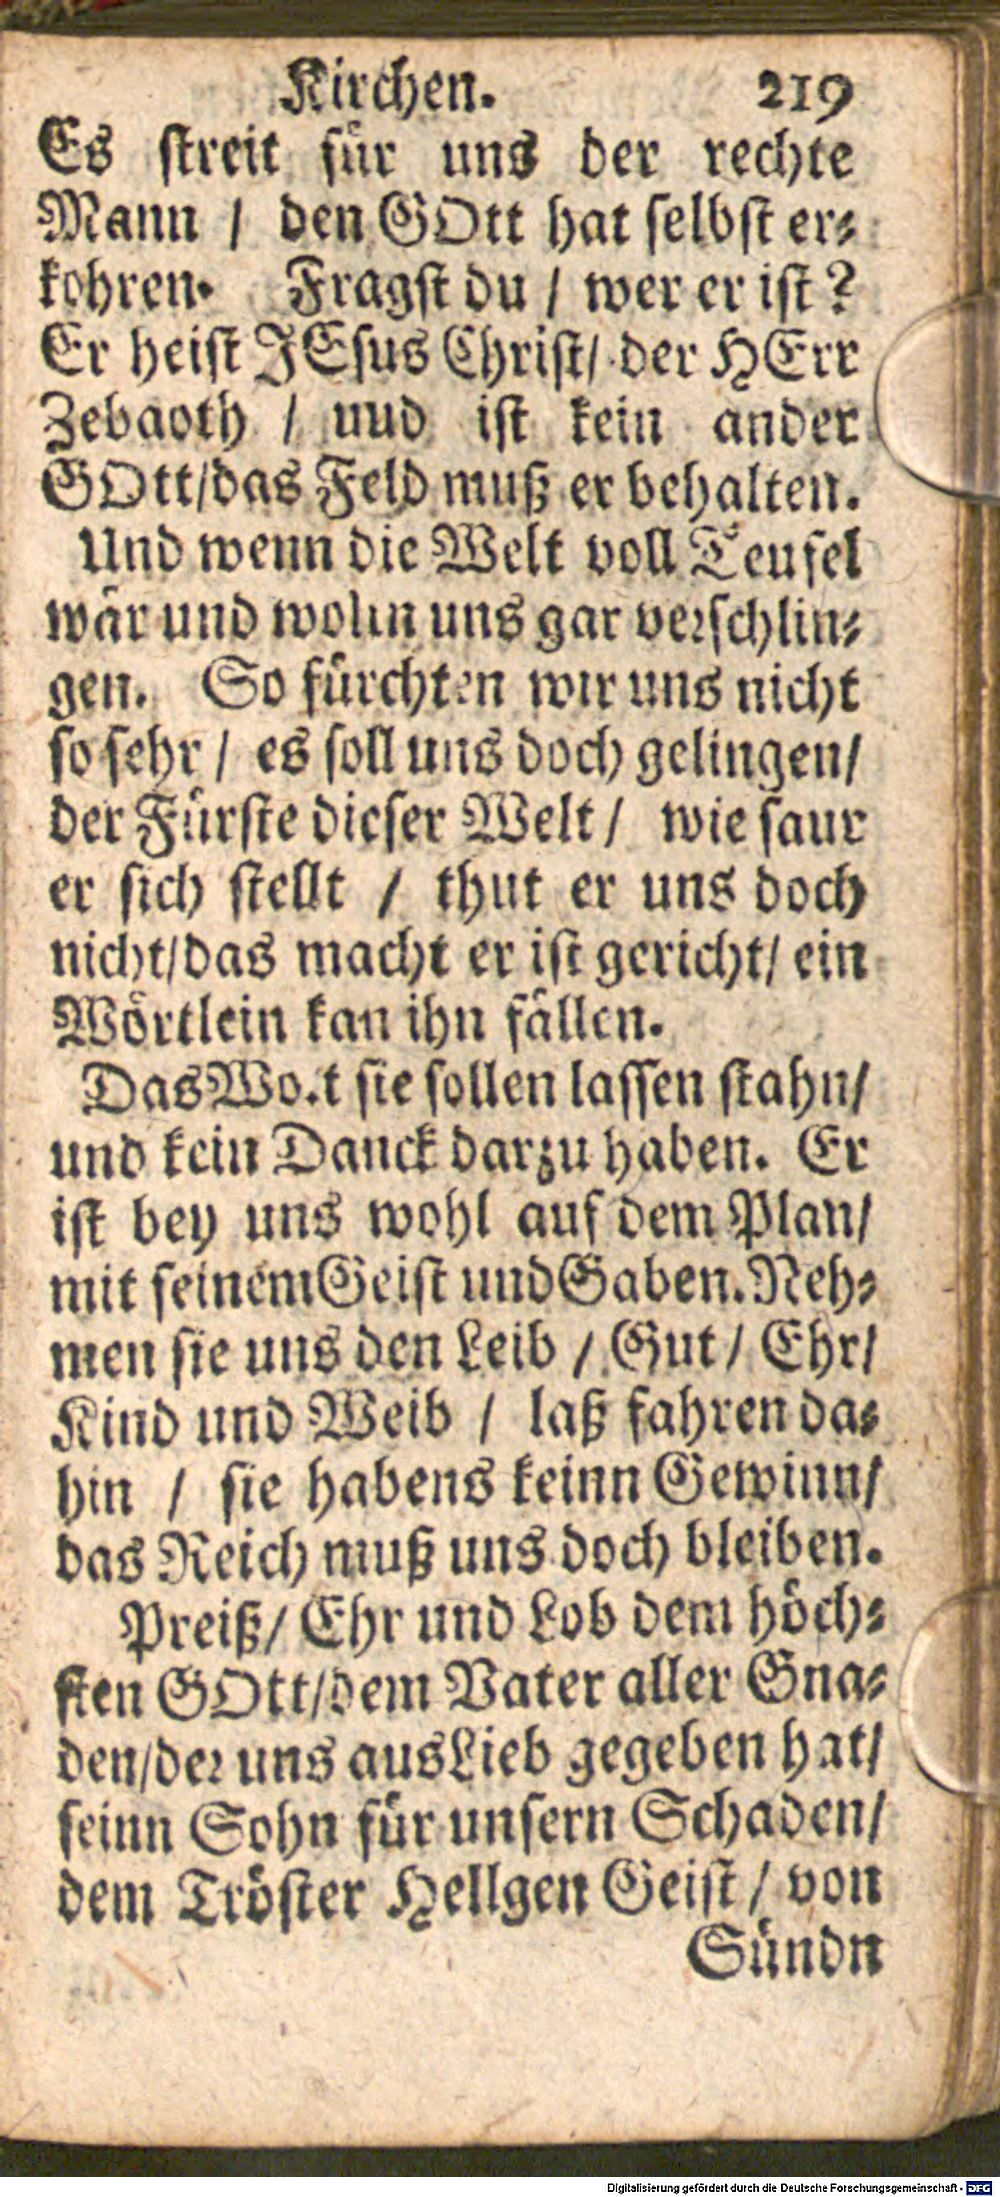 Kirchen. 219
Es streit für uns der rechte
Mann / den GOtt hat selbst er⸗
kohren. Fragst du / wer er ist?
Er heist JEsus Christ/ der HErr
Zebaoth / uud ist kein ander
GOtt/das Feld muß er behalten.
Und wenn die Welt voll Teufel
wär und wolln uns gar verschlin⸗
gen. So fürchten wir uns nicht
so sehr / es soll uns doch gelingen/
der Fürste dieser Welt / wie saur
er sich stellt / thut er uns doch
nicht/das macht er ist gericht/ ein
Wörtlein kan ihn fällen.
Das Wort sie sollen lassen stahn/
und kein Danck darzu haben. Er
ist bey uns wohl auf dem Plan/
mit seinem Geist und Gaben. Neh⸗
men sie uns den Leib / Gut / Ehr/
Kind und Weib / laß fahren da⸗
hin / sie habens keinn Gewinn/
das Reich muß uns doch bleiben.
Preiß/ Ehr und Lob dem höch⸗
sten GOtt/dem Vater aller Gna⸗
den/der uns aus Lieb gegeben hat/
seinn Sohn für unsern Schaden/
dem Tröster Hellgen Geist / von
Sündn
Digitalisierung gefördert durch die Deutsche Forschungsgemeinschaft - DFG